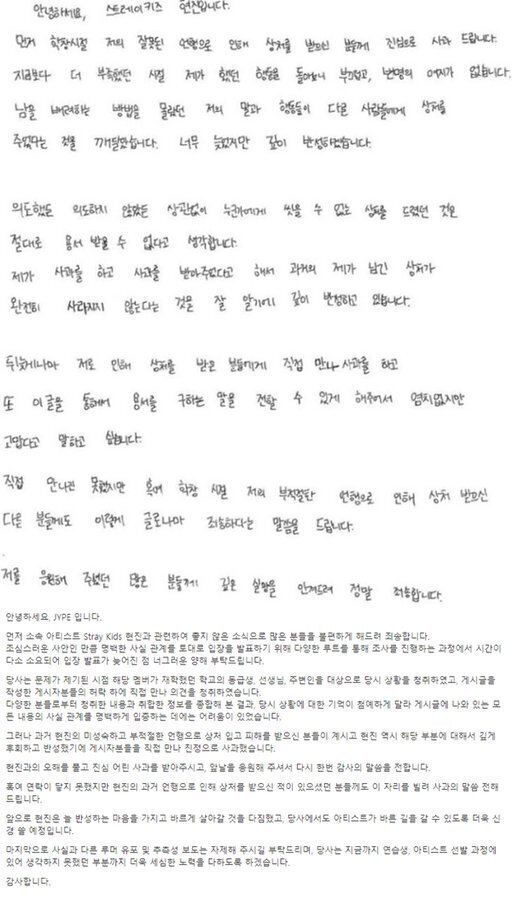 안녕하세요, 스트레이키즈 현진입니다.
먼저 학창시절 저의 잘못된 언행으로 인해 상처를 받으신 분들께 진심으로 사과 드립니다.
지금보다 더 부족했던 시절 제가 했던 행동을 돌아보니 부끄럽고, 변명의 여지가 없습니다.
남을 배려하는 방법을 몰랐던 저의 말과 행동들이 다른 사람들에게 상처를
주었다는 것을 깨달았습니다. 너무 늦었지만 깊이 반성하였습니다.
의도했든 의도하지 않았든 상관없이 누군가에게 씻을 수 없는 상처를 드렸던 것은
절대로 용서 받을 수 없다고 생각합니다.
제가 사과를 하고 사과를 받아주었다고 해서 과거의 제가 남긴 상처가
완전히 사라지지 않는다는 것을 잘 알기에 깊이 반성하고 있습니다.
뒤늦게나마 저로 인해 상처를 받은 분들에게 직접 만나 사과를 하고
또 이글을 통해서 용서를 구하는 말을 전할 수 있게 해주어서 염치없지만
고맙다고 말하고 싶습니다.
직접 만나진 못했지만 혹여 학창 시절 저의 부적절한 언행으로 인해 상처 받으신
다른 분들께도 이렇게 글로나마 죄송하다는 말씀을 드립니다.
저를 응원해 주셨던 많은 분들께 깊은 실망을 안겨드려 정말 죄송합니다.
안녕하세요. JYPE 입니다.
먼저 소속 아티스트 Stray Kids 현진과 관련하여 좋지 않은 소식으로 많은 분들을 불편하게 해드려 죄송합니다.
조심스러운 사안인 만큼 명백한 사실 관계를 토대로 입장을 발표하기 위해 다양한 루트를 통해 조사를 진행하는 과정에서 시간이
다소 소요되어 입장 발표가 늦어진 점 너그러운 양해 부탁드립니다.
당사는 문제가 제기된 시점 해당 멤버가 재학했던 학교의 동급생, 선생님, 주변인을 대상으로 당시 상황을 청취하였고, 게시글을
작성한 게시자분들의 허락 하에 직접 만나 의견을 청취하였습니다.
다양한 분들로부터 청취한 내용과 취합한 정보를 종합해 본 결과, 당시 상황에 대한 기억이 첨예하게 달라 게시글에 나와 있는 모
든 내용의 사실 관계를 명백하게 입증하는 데에는 어려움이 있었습니다.
그러나 과거 현진의 미성숙하고 부적절한 언행으로 상처 입고 피해를 받으신 분들이 계시고 현진 역시 해당 부분에 대해서 깊게
후회하고 반성했기에 게시자분들을 직접 만나 진정으로 사과했습니다.
현진과의 오해를 풀고 진심 어린 사과를 받아주시고, 앞날을 응원해 주셔서 다시 한번 감사의 말씀을 전합니다.
혹여 연락이 닿지 못했지만 현진의 과거 언행으로 인해 상처를 받으신 적이 있으셨던 분들께도 이 자리를 빌려 사과의 말씀 전해
드립니다.
앞으로 현진은 늘 반성하는 마음을 가지고 바르게 살아갈 것을 다짐했고, 당사에서도 아티스트가 바른 길을 갈 수 있도록 더욱 신
경 쓸 예정입니다.
마지막으로 사실과 다른 루머 유포 및 추측성 보도는 자제해 주시길 부탁드리며, 당사는 지금까지 연습생, 아티스트 선발 과정에
있어 생각하지 못했던 부분까지 더욱 세심한 노력을 다하도록 하겠습니다.
감사합니다.